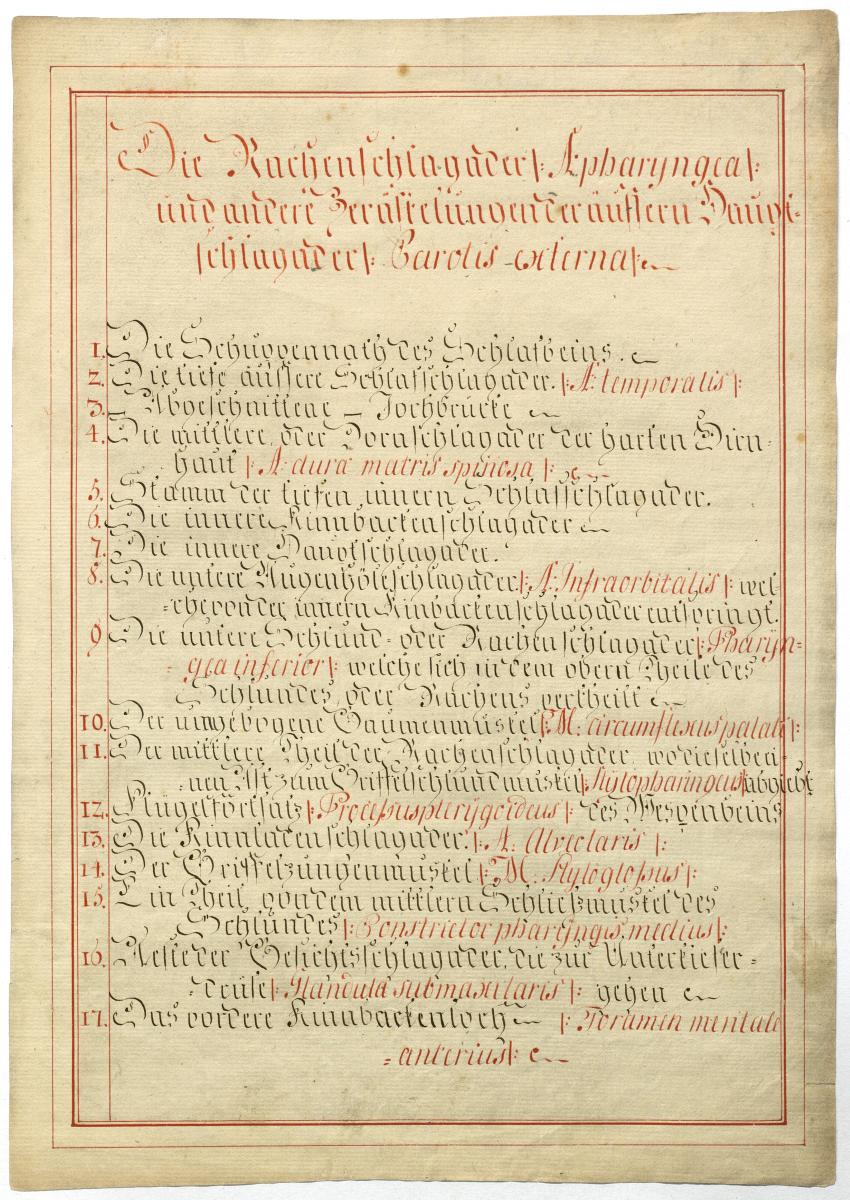 Die Rachenschlagader |: A: pharyngea |:
und andere Zerästelungen der äussern Haupt-
schlagader |: Carotis externa |:
1. Die Schuppennath des Schlafbeins.
2. Die tiefe äussere Schlafschlagader. |: A: temporalis |:
3. Abgeschnittene - Jochbrücke
4. Die mittlere oder Dornschlagader der harten Hirn-
haut |: A: duræ matris spinosa |:
5. Stamm der tiefen innern Schlafschlagader.
6. Die innere Kinnbackenschlagader
7. Die innere Hauptschlagader.
8. Die untere Augenhöleschlagader |: A: Infraorbitalis |: wel-
=che von der innern Kinbackenschlagader entspringt.
9 Die untere Schlund= oder Rachenschlagader |: Pharyn=
=gea inferior |: welche sich in dem obern Theile des
Schlundes oder Rachens vertheilt
10. Der umgebogene Gaumenmuskel |: M: circumflexus palati |:
11. Der mittlere Theil der Rachenschlagader, wo dieselbe ei-
nen Ast zum Griffelschlundmuskel |: Stylopharingeus |: abgiebt
12. Flügelfortsatz |: Processus pterygoideus |: des Wespenbeins
13. Die Kinnladenschlagader. |: A: Alveolaris |:
14. Der Griffelzungenmuskel |: M: Styloglossus |:
15. Ein Theil von dem mittlern Schließmuskel des
Schlundes |: Constrictor pharyngis medius |:
16. Aeste der Gesichtsschlagader, die zur Unterkiefer=
=drüse |: Glandula submaxilaris |: gehen
17. Das vordere Kinnbackenloch |: Foramen mentale
=anterius |: